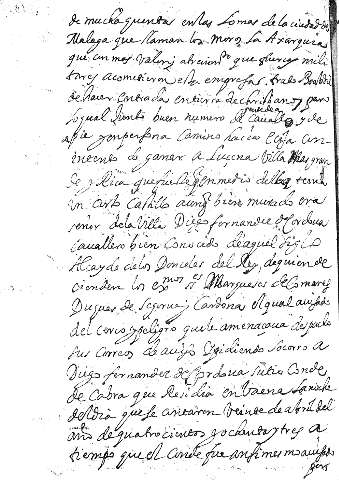 de mucha quenta en las Lomas de la ciudad de
Malaga que llaman los moros la Axarquia
que con mas valor y atrevim.to que fuerças mili
tares acometieron esta empresa, trato Boabdil
de hacer entrada en tierra de christianos, para
lo qual Junto buen numero de Cavall.s y de
a pie y en persona camino hacia Ecija con
intento de ganar a Luçena Villa mas gran
de y Rica que fuerte en medio de la qual tenia
un cierto Castillo aunq bien murado era
señor de la Villa Diego fernandez de Cordova
Cavallero bien Conocido de aquel siglo
Alcayde de los Donceles del Rey, de quien de
cienden los ex.mos s.es Marqueses de Comares
Duques de Segorve y Cardona el qual avisado
del cerco y peligro que le amenaçava despacho
sus correos de aviso pidiendo Socorro a
Diego fernandez de Cordova su tio Conde
de Cabra que Residia en Vaena
del dia que se contaron Veinte de abril del
año de quatrocientos y ochenta y tres a
tiempo que el Conde fue ansimesmo avisado